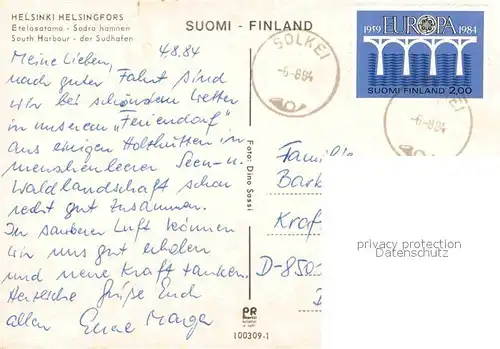 HELSINKI HELSINGFORS
Etelasatama - Sodra hamnen
South Harbour - der Südhafen
SUOMI - FINLAND
1959 EUROPA 1984
SUOMI FINLAND 2,00
SOLKEI
-6-8-84
KEI
-6-8-84
4.8.84
Meine Lieben,
nach guter Fahrt sind
wir bei schönstem Wetter
in unserem "Feriendorf"
aus einigen Holzhütten in
menschenleerer Seen- u.
Waldlandschaft schon
recht gut zusammen.
In sauberer Luft können
wir uns gut erholen
und neue Kraft tanken.
Herzliche Grüße Euch
allen Eure
Foto: Dino Sassi
Familie
Bark
Kraf
D-850
privacy protection
Datenschutz
PR
100309-1